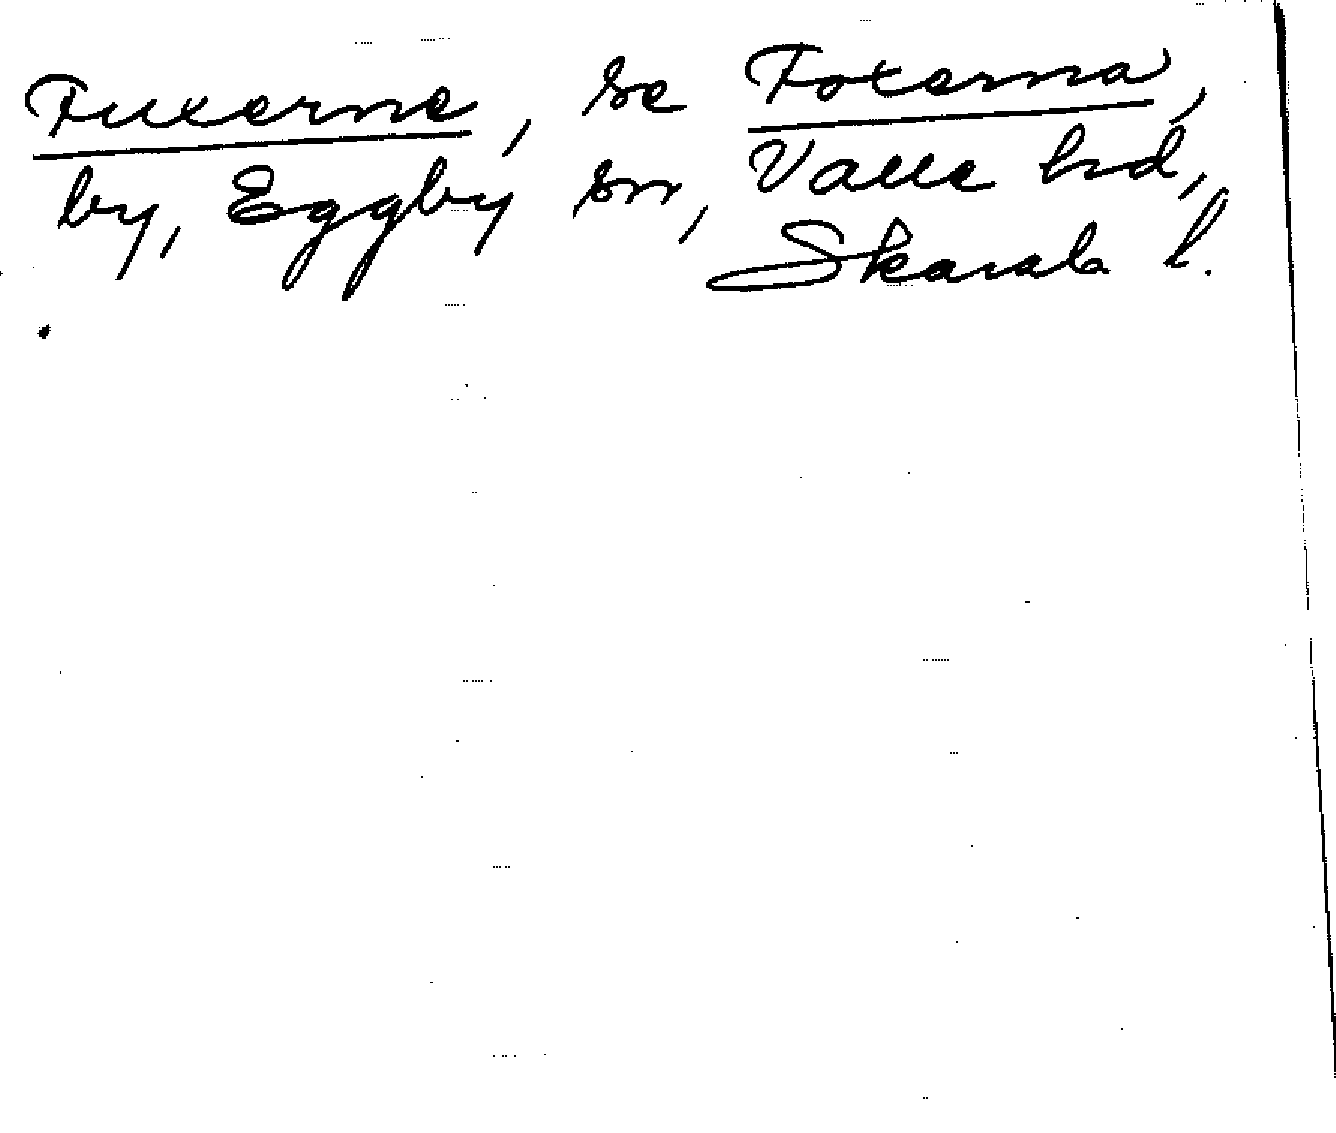 Fuxerne, se Foxerna,
by, Eggby sn, Valle hd,
Skarab l.